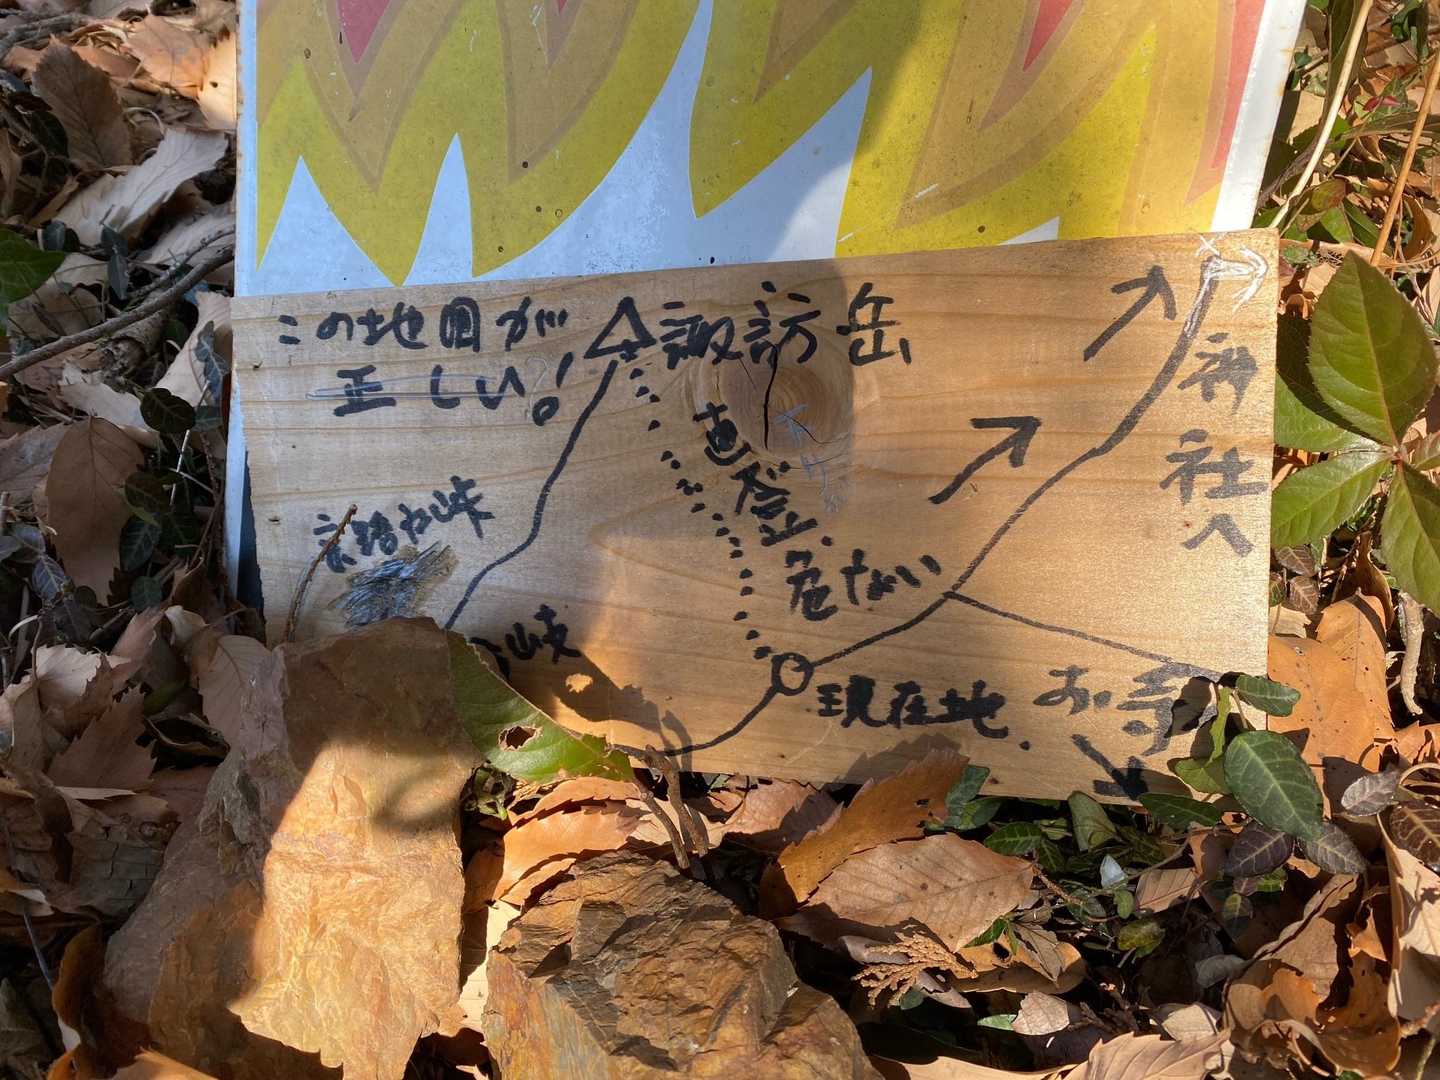 この地図が
正しい!
諏訪岳
直登
危ない
京路ヶ峠
分岐
現在地
神社へ
お寺